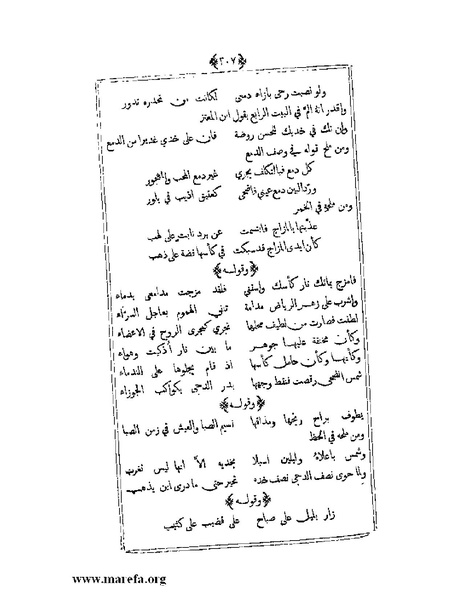 ﴿٣٠٧﴾
ولو نصبت رحى بازاء دمعي لكانت من تحدره تدور
واقدر انه المّ في البيت الرابع بقول ابن المعتز
وان تك في خديك للحسن روضة فان على خدي غديرا من الدمع
ومن ملح قوله في وصف الدمع
كل دمع فبالتكلف يجري غير دمع المحب والمهجور
ورّد البين دمع عيني فاضحى كعقيق اذيب في بلور
ومن ملحه في الخمر
عذّبتها بالمزاج فابتسمت عن برد نابت على لهب
كأن ايدي المزاج قد سبكت في كأسها فضة على ذهب
﴿وقوله﴾
فامزج بمائك نار كأسك واسقني فلقد مزجت مدامعي بدماء
واشرب على زهر الرياض مدامة تنفي الهموم بعاجل السراء
لطفت فصارت من لطيف محلها تجري كمجرى الروح في الاعضاء
وكأن مخنقة عليها جوهر ما بين نار اذكيت وهواء
وكأنها وكأن حامل كأسها اذ قام يجلوها على الندماء
شمس الضحى رقصت فنقط وجهها بدر الدجى بكواكب الجوزاء
﴿وقوله﴾
يطوف براح ريحها ومذاقها نسيم الصبا والعيش في زمن الصبا
ومن ملحه في الخط
وشمس باعلاه وليلين اسبلا بخديه الاّ انها ليس تغرب
ولما حوى نصف الدجى نصف خده تحير حتى ما درى اين يذهب
﴿وقوله﴾
زار بليل على صباح على قضيب على كثيب
www.marefa.org